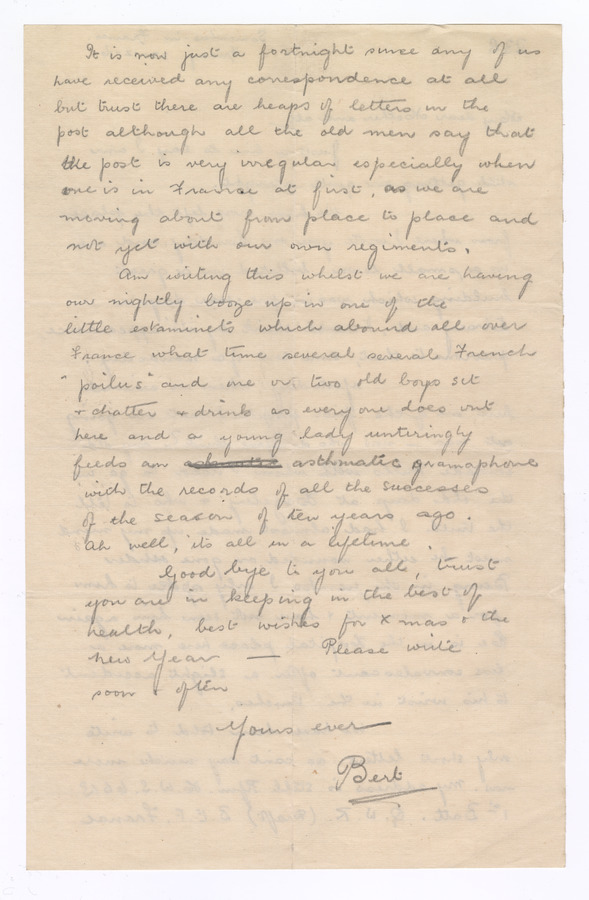 It is now just a fortnight since any of us
have received any correspondence at all
but trust there are heaps of letters in the
post although all the old men say that
the post is very irregular especially when
one is in France at first, as we are
moving about from place to place and
not yet with our own regiments.
Am writing this whilst we are having
our nightly booze up in one of the
little estaminets which abound all over
France what time several several French
"poilus" and one or two old boys sit
+ chatter + drink as everyone does out
here and a young lady untiringly
feeds an asthmatic gramaphone
with the records of all the successes
of the season of ten years ago.
Ah well, its all in a lifetime.
Good bye to you all, trust
you are in keeping in the best of
health, best wishes for Xmas + the
New Year — Please write
soon + often
Yours ever
Bert